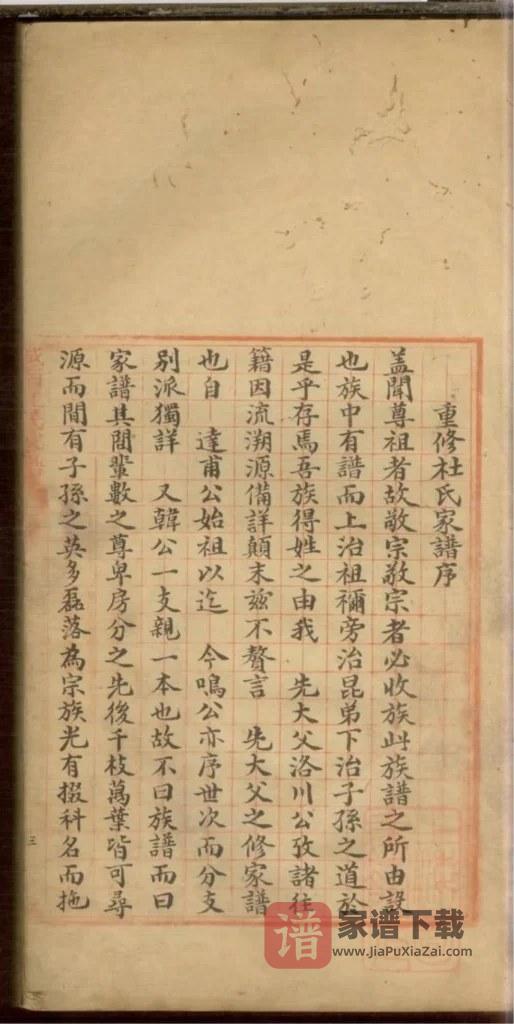 重修杜氏家譜序
蓋聞尊祖者故敬宗敬宗者必收族此族譜之所由設
也族中有譜而上治祖禰旁治昆弟下治子孫之道於
是乎存焉吾族得姓之由我 先大父洛川公攷諸往
籍因流溯源備詳顛末茲不贅言 先大父之修家譜
也自 達甫公始祖以迄 今鳴公亦序世次而分支
別派獨詳 又韓公一支親一本也故不曰族譜而曰
家譜其間輩數之尊卑房分之先後千枝萬葉皆可尋
源而間有子孫之英多磊落為宗族光有掇科名而拖
三
谱
家谱下载
www.JiaPuXiaZai.com